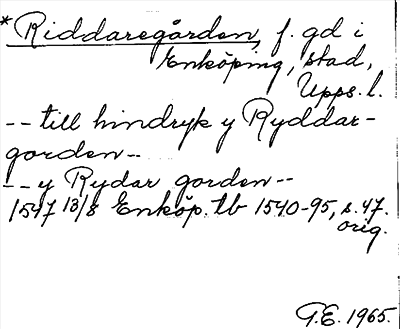 *Riddaregården, f. gd i
Enköping, stad,
Upps. l.
-- till hindryk y Ryddar-
gorden --
-- y Rydar gorden --
1547 13/8 Enköp. tb 1540-95, s. 47.
orig.
G.E. 1965.